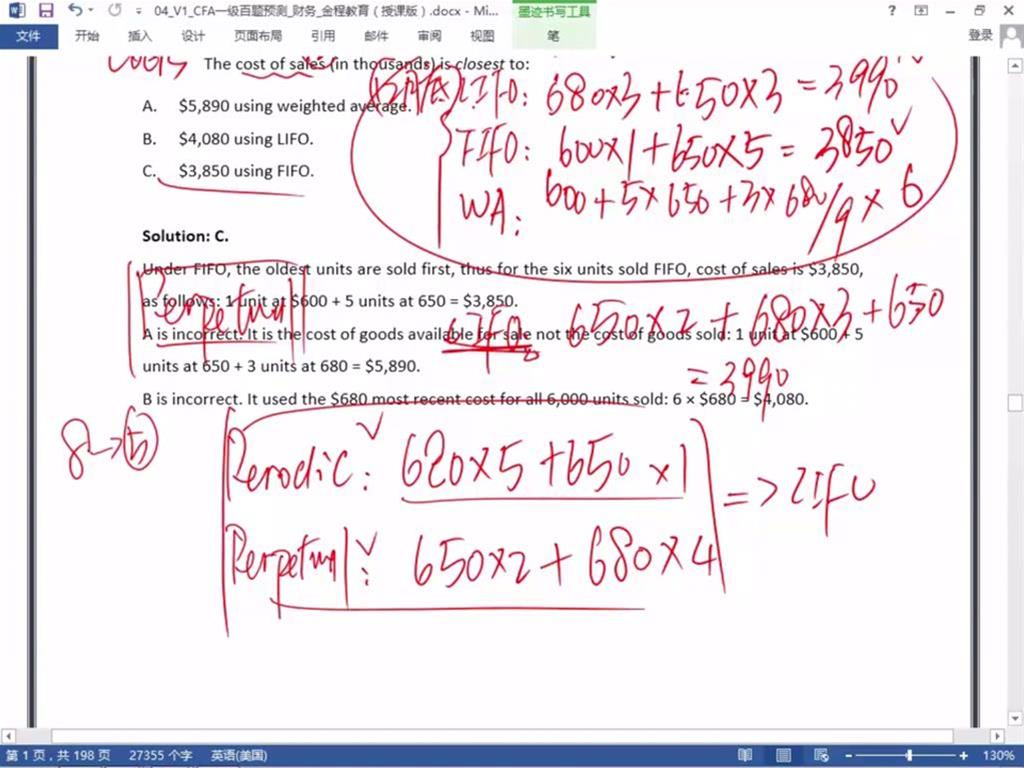 04_V1_CFA一级百题预测_财务_金程教育（授课版）.docx - Mi...
墨迹书写工具
文件 开始 插入 设计 页面布局 引用 邮件 审阅 视图 笔 登录
The cost of sales (in thousands) is closest to:
LIFO: 680×3+650×3=3990
A. $5,890 using weighted average.
B. $4,080 using LIFO.
FIFO: 600×1+650×5=3850
C. $3,850 using FIFO.
WA: 600+5×650+3×680/9×6
Solution: C.
Under FIFO, the oldest units are sold first, thus for the six units sold FIFO, cost of sales is $3,850,
as follows: 1 unit at $600 + 5 units at 650 = $3,850.
Perpetual
650×2+680×3+650
A is incorrect. It is the cost of goods available for sale not the cost of goods sold: 1 unit at $600 + 5
units at 650 + 3 units at 680 = $5,890.
=3990
B is incorrect. It used the $680 most recent cost for all 6,000 units sold: 6 × $680 = $4,080.
8→5
Perodic: 680×5+650×1
=> LIFO
Perpetual: 650×2+680×4
第 1 页，共 198 页 27355 个字 英语(美国) 130%